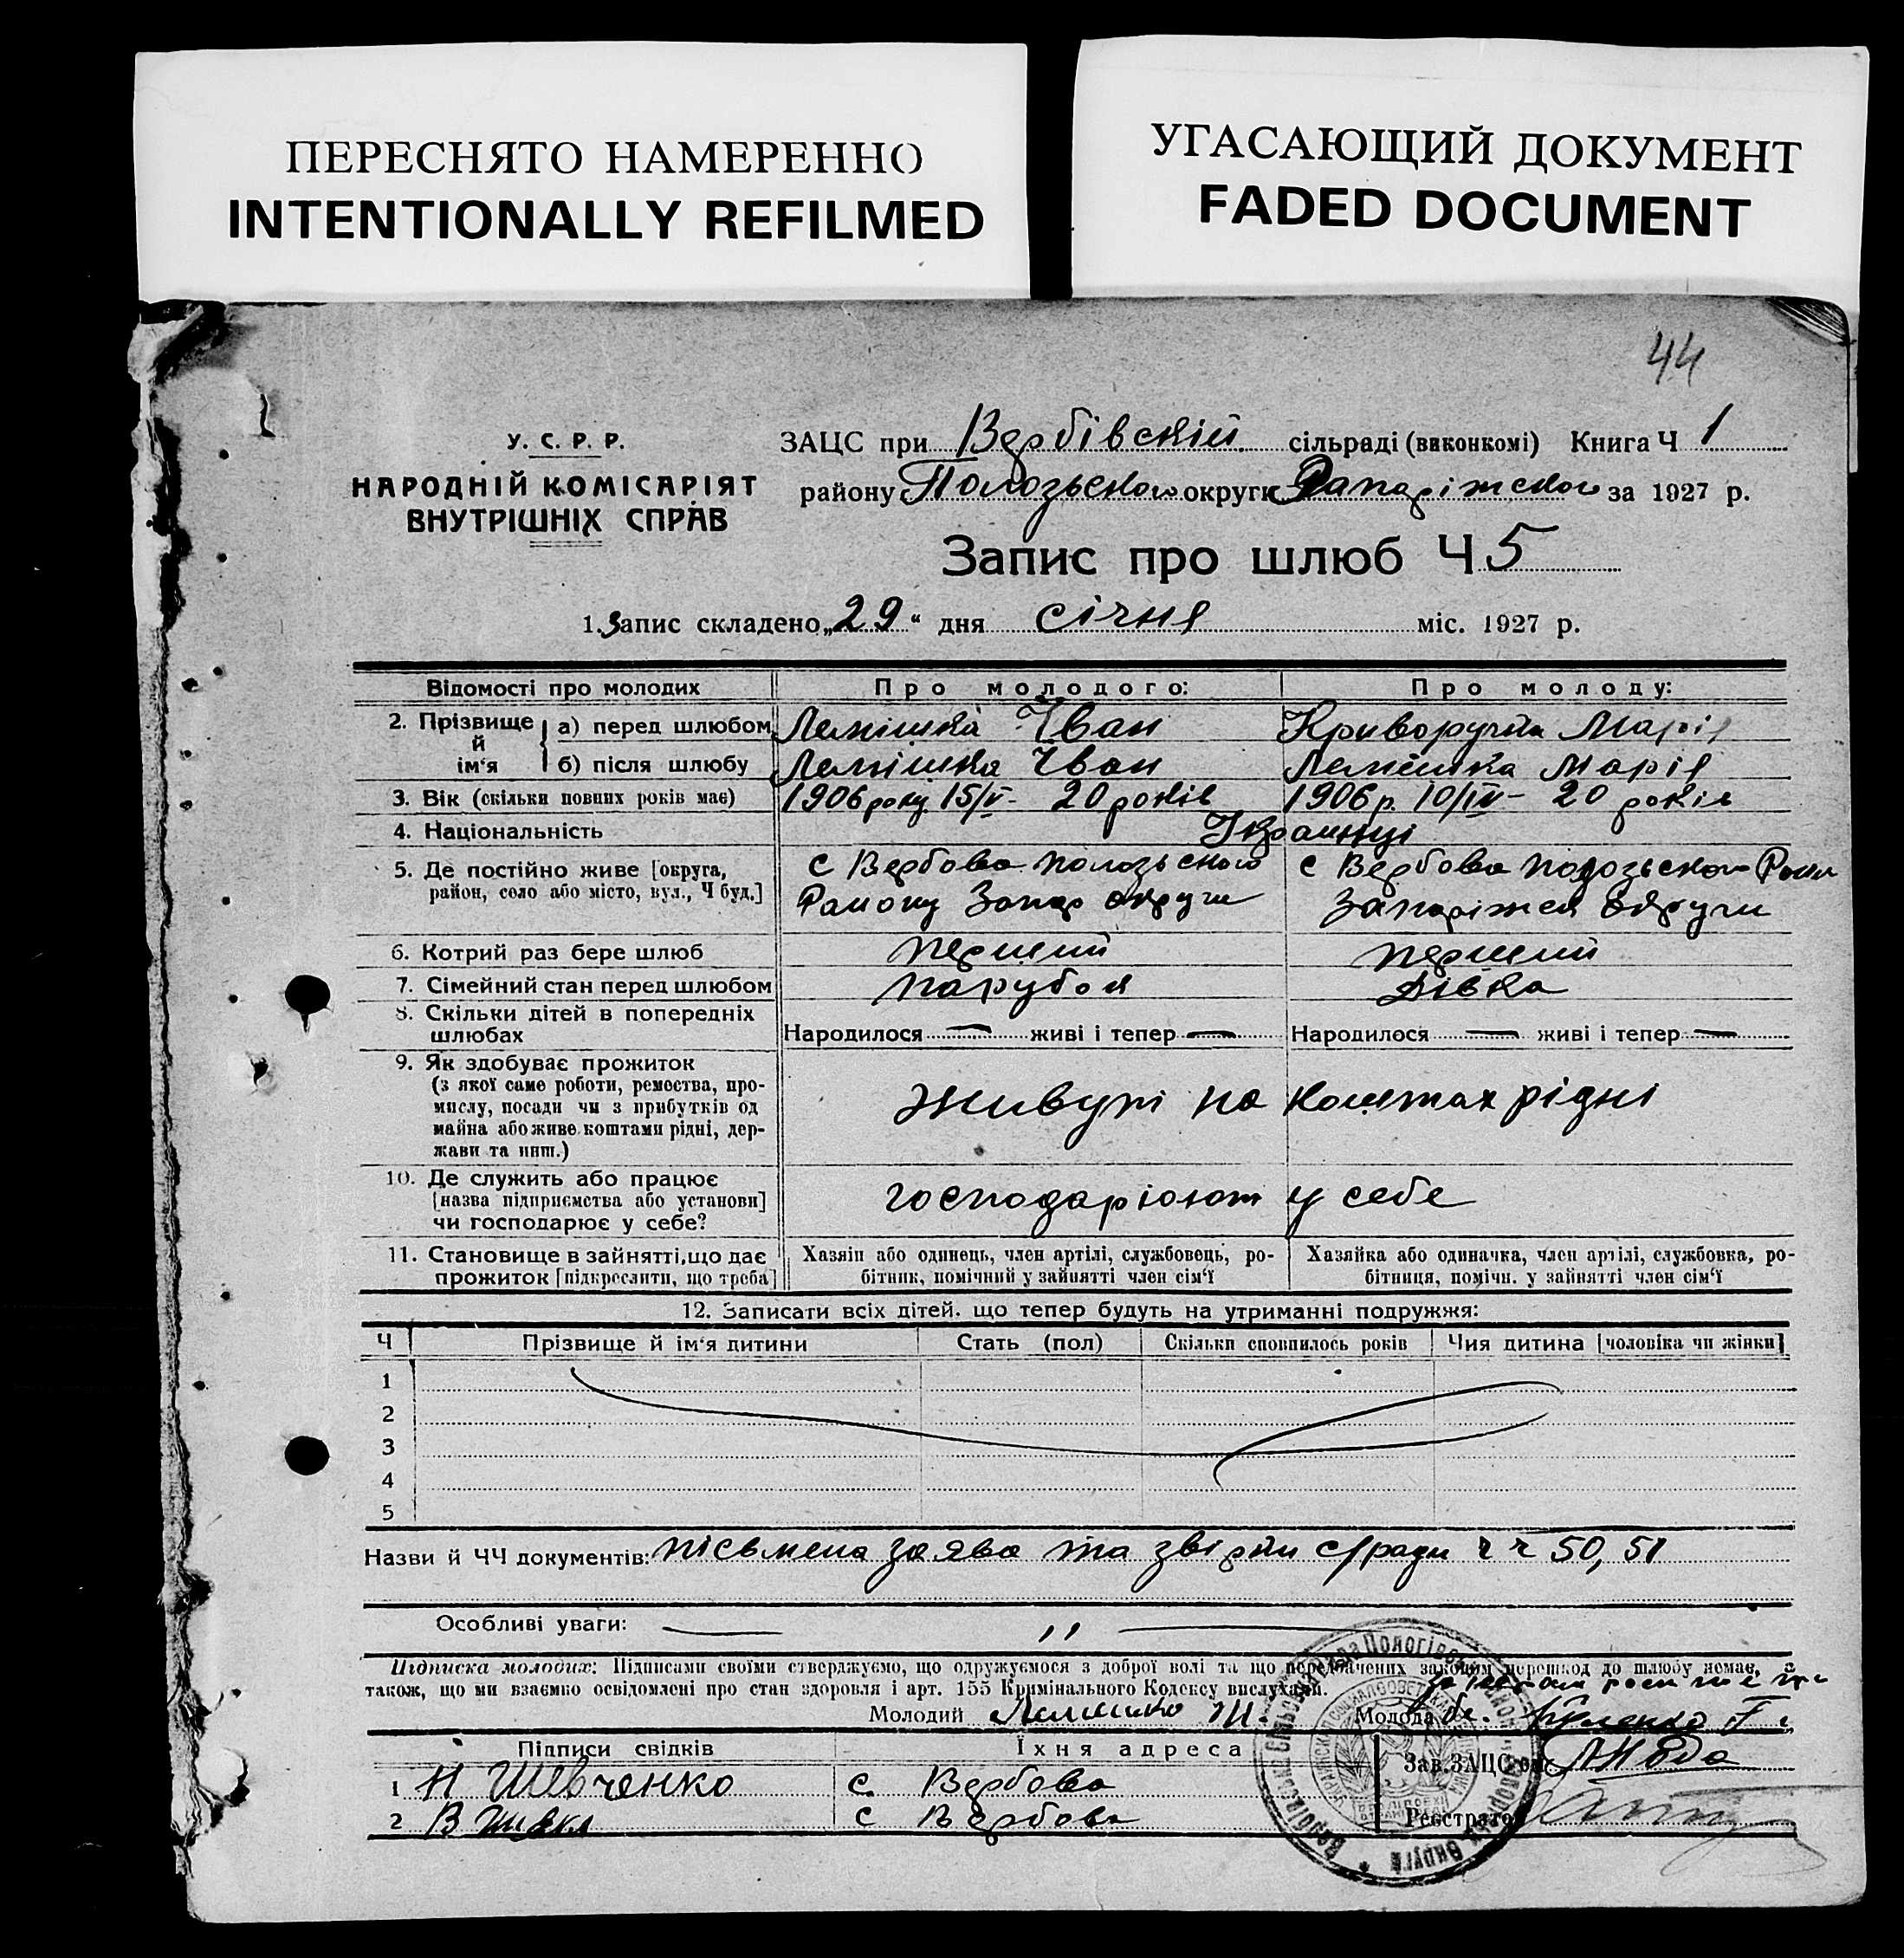 ПЕРЕСНЯТО НАМЕРЕННО
INTENTIONALLY REFILMED
УГАСАЮЩИЙ ДОКУМЕНТ
FADED DOCUMENT
44
У. С. Р. Р.
НАРОДНІЙ КОМІСАРІЯТ
ВНУТРІШНІХ СПРАВ
ЗАЦС при Вербівскій сільраді (виконкомі) Книга Ч 1
району Полозьского округи Запоріжского за 1927 р.
Запис про шлюб Ч 5
1. Запис складено „29“ дня січня міс. 1927 р.
Відомості про молодих Про молодого: Про молоду:
2. Прізвище й ім‘я а) перед шлюбом Лемішка Іван Криворучка Марія
б) після шлюбу Лемішка Іван Лемешка Марія
3. Вік (скільки повних років має) 1906 року 15/V - 20 років 1906 р. 10/IV - 20 років
4. Національність Українці
5. Де постійно живе [округа, район, село або місто, вул., Ч буд.]
с Вербова Полозьского
Району Запор округи
с Вербова Полозьского Рону
Запоріжск округи
6. Котрий раз бере шлюб перший перший
7. Сімейний стан перед шлюбом парубок дівка
8. Скільки дітей в попередніх шлюбах Народилося — живі і тепер — Народилося — живі і тепер —
9. Як здобуває прожиток
(з якої саме роботи, ремества, про-
мислу, посади чи з прибутків од
майна або живе коштами рідні, дер-
жави та инш.)
живуть на коштах рідні
10. Де служить або працює
[назва підприємства або установи]
чи господарює у себе?
господарюють у себе
11. Становище в зайнятті, що дає
прожиток [підкреслити, що треба]
Хазяїн або одинець, член артілі, службовець, ро-
бітник, помічний у зайнятті член сім‘ї
Хазяйка або одиначка, член артілі, службовка, ро-
бітниця, помічн. у зайнятті член сім‘ї
12. Записати всіх дітей, що тепер будуть на утриманні подружжя:
Ч Прізвище й ім‘я дитини Стать (пол) Скільки сповнилось років Чия дитина [чоловіка чи жінки]
1
2
3
4
5
Назви й ЧЧ документів: пісьмена заява та звірки с/ради ч ч 50, 51
Особливі уваги: — ,, —
Підписка молодих: Підписами своїми стверджуємо, що одружуємося з доброї волі та що передбачених законом перешкод до шлюбу немає,
також, що ми взаємно освідомлені про стан здоровля і арт. 155 Кримінального Кодексу вислухали.
Молодий Лемешко Молода
Підписи свідків Їхня адреса
1 Н Шевченко с. Вербова
2 В с Вербова
Зав. ЗАЦС‘ом
Реєстратор